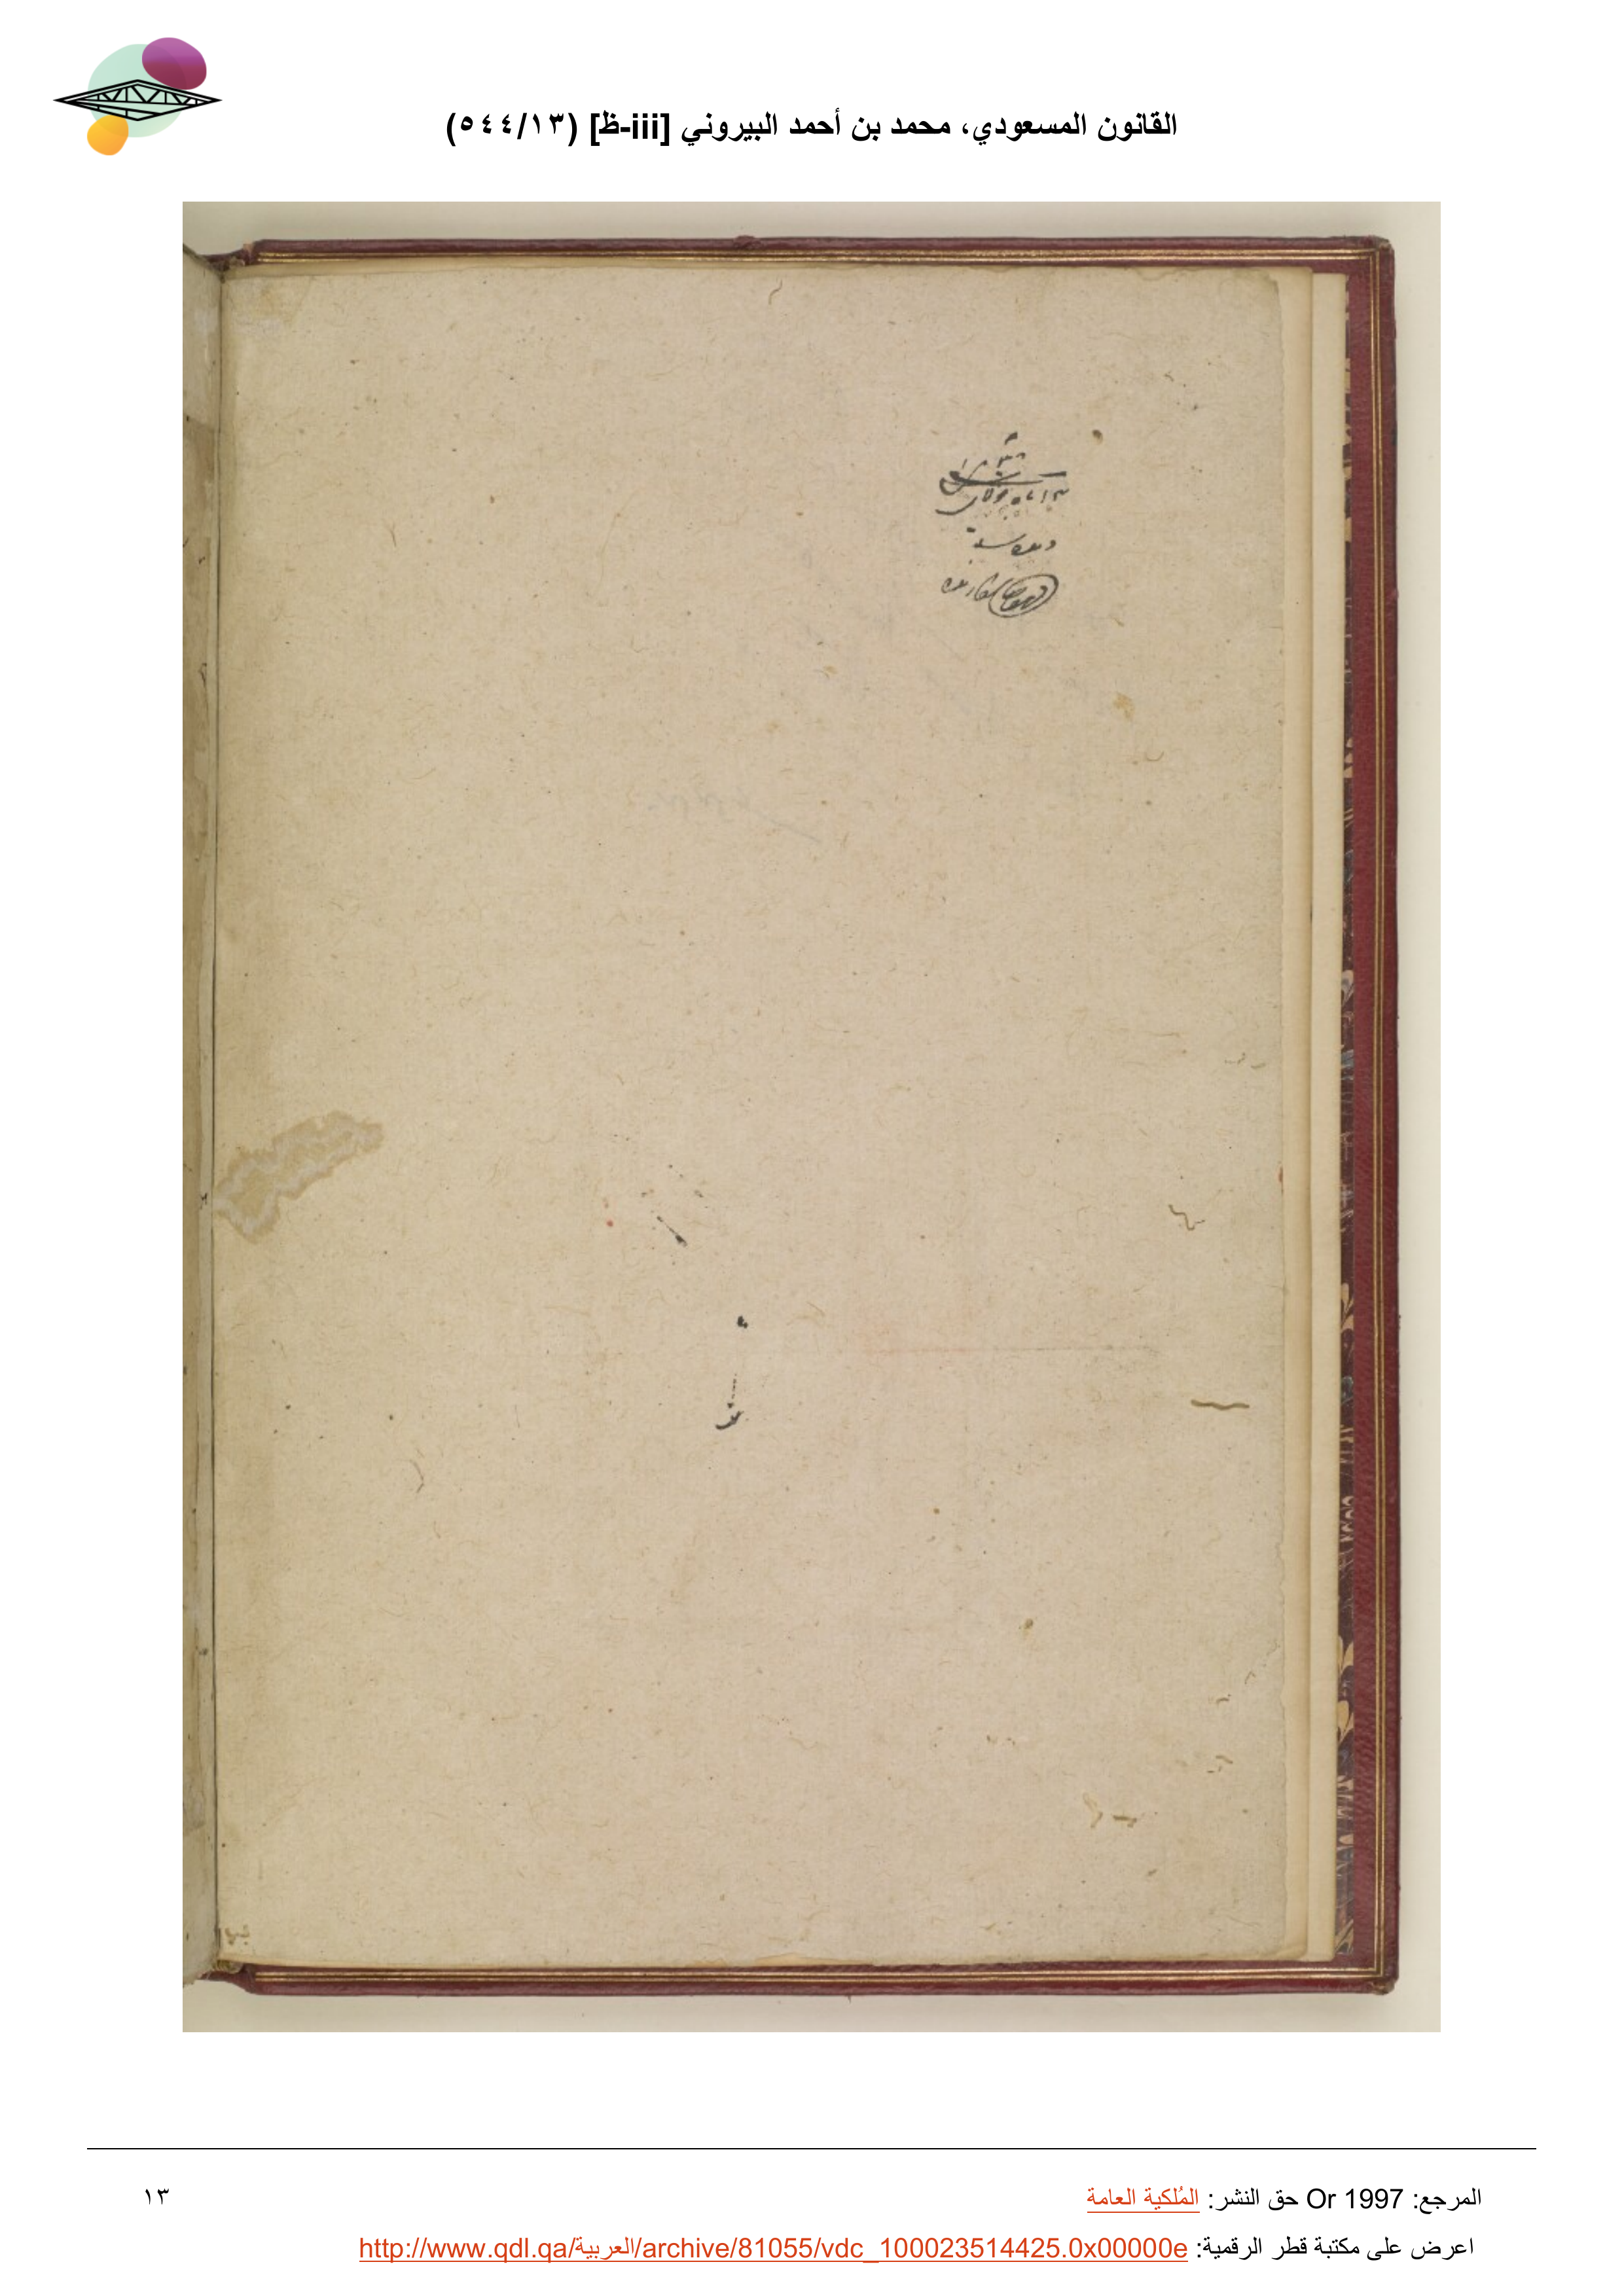 القانون المسعودي، محمد بن أحمد البيروني [iii-ظ] (٥٤٤/١٣)
المرجع: Or 1997 حق النشر: المُلكية العامة
١٣
اعرض على مكتبة قطر الرقمية: http://www.qdl.qa/العربية/archive/81055/vdc_100023514425.0x00000e